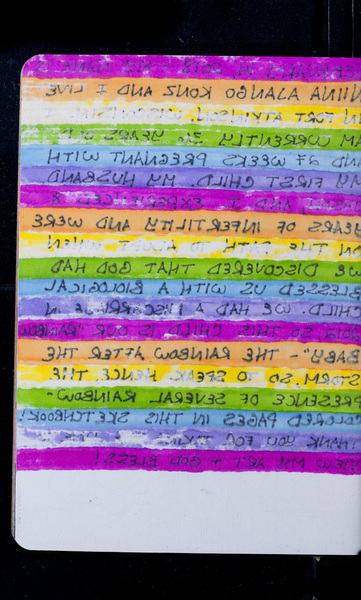 FEBRUARY 2018 - MY NAME IS
NIINA ALANGO KONZ AND I LIVE
IN FORT ATKINSON, WISCONSIN. I
AM CURRENTLY YEARS OLD
AND 27 WEEKS PREGNANT WITH
MY FIRST CHILD. MY HUSBAND
AND I EXPERIENCED 8
YEARS OF INFERTILITY AND WERE
ON THE PATH TO ADOPT WHEN
WE DISCOVERED THAT GOD HAD
BLESSED US WITH A BIOLOGICAL
CHILD. WE HAD A MISCARRIAGE IN
2012, SO THIS CHILD IS OUR "RAINBOW
BABY" - THE RAINBOW AFTER THE
STORM, SO TO SPEAK. HENCE THE
PRESENCE OF SEVERAL RAINBOW-
COLORED PAGES IN THIS SKETCHBOOK!
THANK YOU FOR TAKING TIME TO
VIEW MY ART + GOD BLESS!